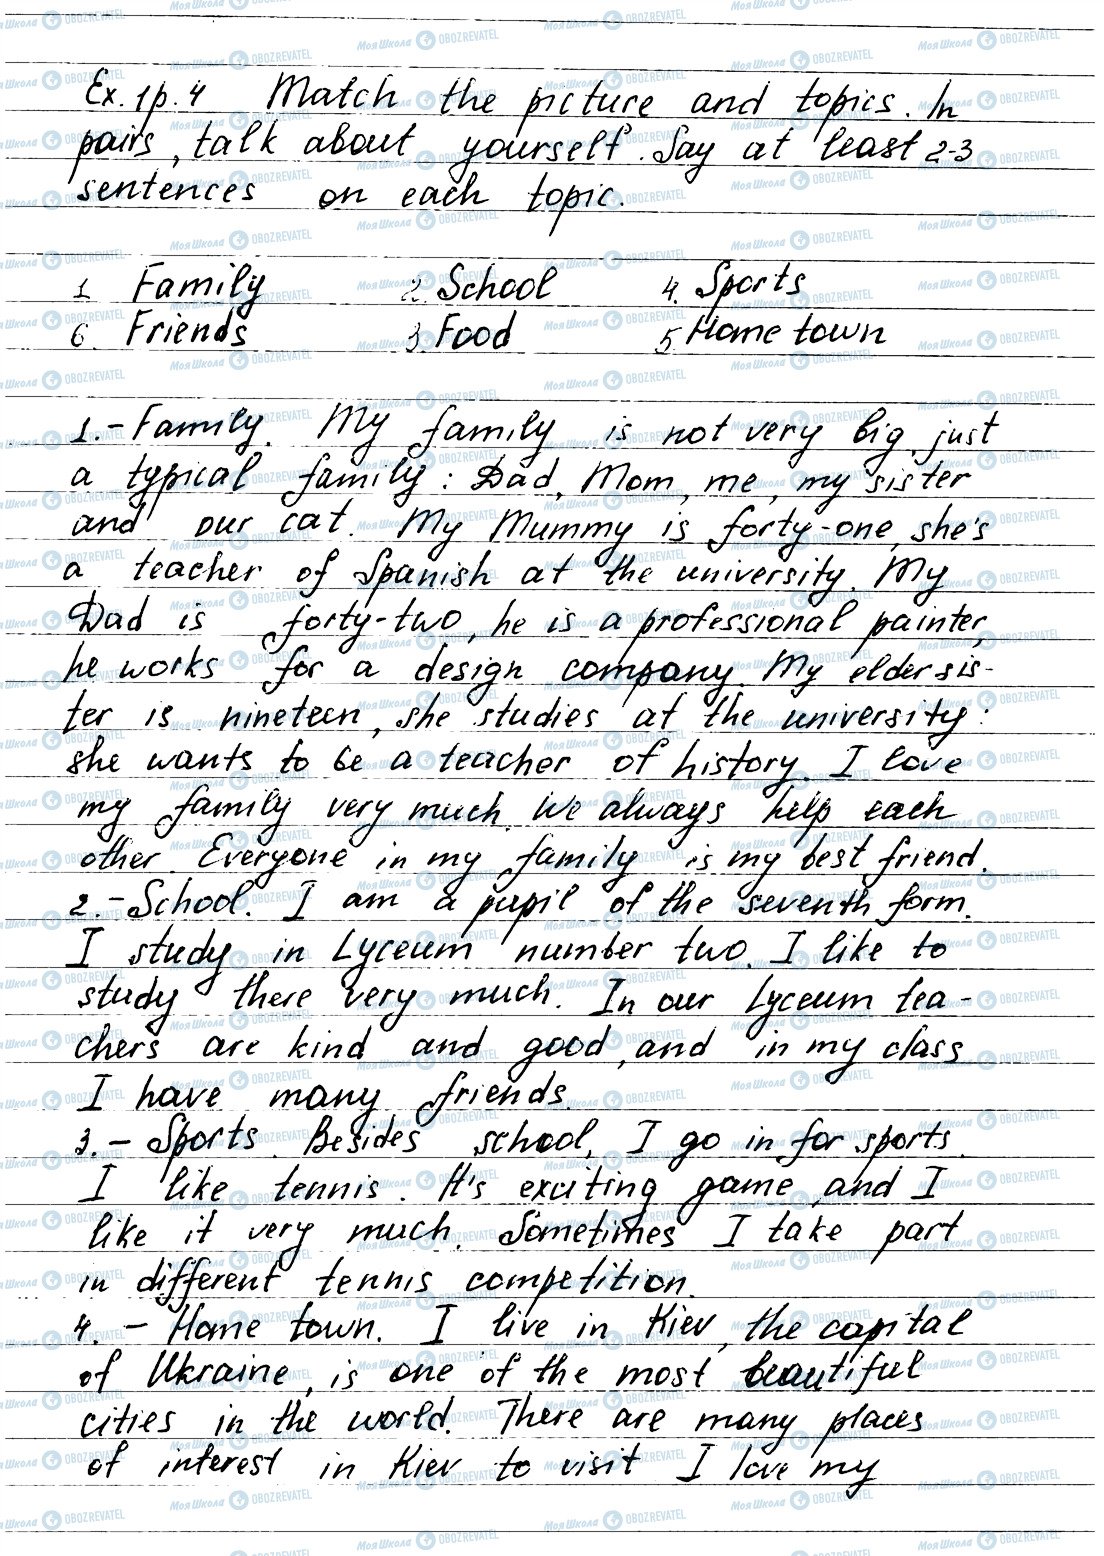 Ex. 1 p. 4 Match the picture and topics. In
pairs, talk about yourself. Say at least 2-3
sentences on each topic.
1 Family 2. School 4. Sports
6. Friends 3. Food 5. Home town
1. - Family. My family is not very big, just
a typical family: Dad, Mom, me, my sister
and our cat. My Mummy is forty-one, she's
a teacher of Spanish at the university. My
Dad is forty-two, he is a professional painter,
he works for a design company. My elder sis-
ter is nineteen, she studies at the university:
she wants to be a teacher of history. I love
my family very much. We always help each
other. Everyone in my family is my best friend.
2. - School. I am a pupil of the seventh form.
I study in Lyceum number two. I like to
study there very much. In our Lyceum tea-
chers are kind and good, and in my class
I have many friends.
3. - Sports. Besides school, I go in for sports.
I like tennis. It's exciting game and I
like it very much. Sometimes I take part
in different tennis competition.
4. - Home town. I live in Kiev, the capital
of Ukraine, is one of the most beautiful
cities in the world. There are many places
of interest in Kiev to visit I love my
МояШкола OBOZREVATEL